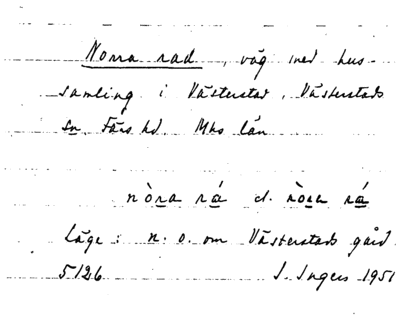 Norra rad, väg med hus-
samling i Västerstad, Västerstads
sn, Färs hd. Mhs län
nòra rá el. nòra rá
Läge: n.o. om Västerstads gård
5126 I. Ingers 1951